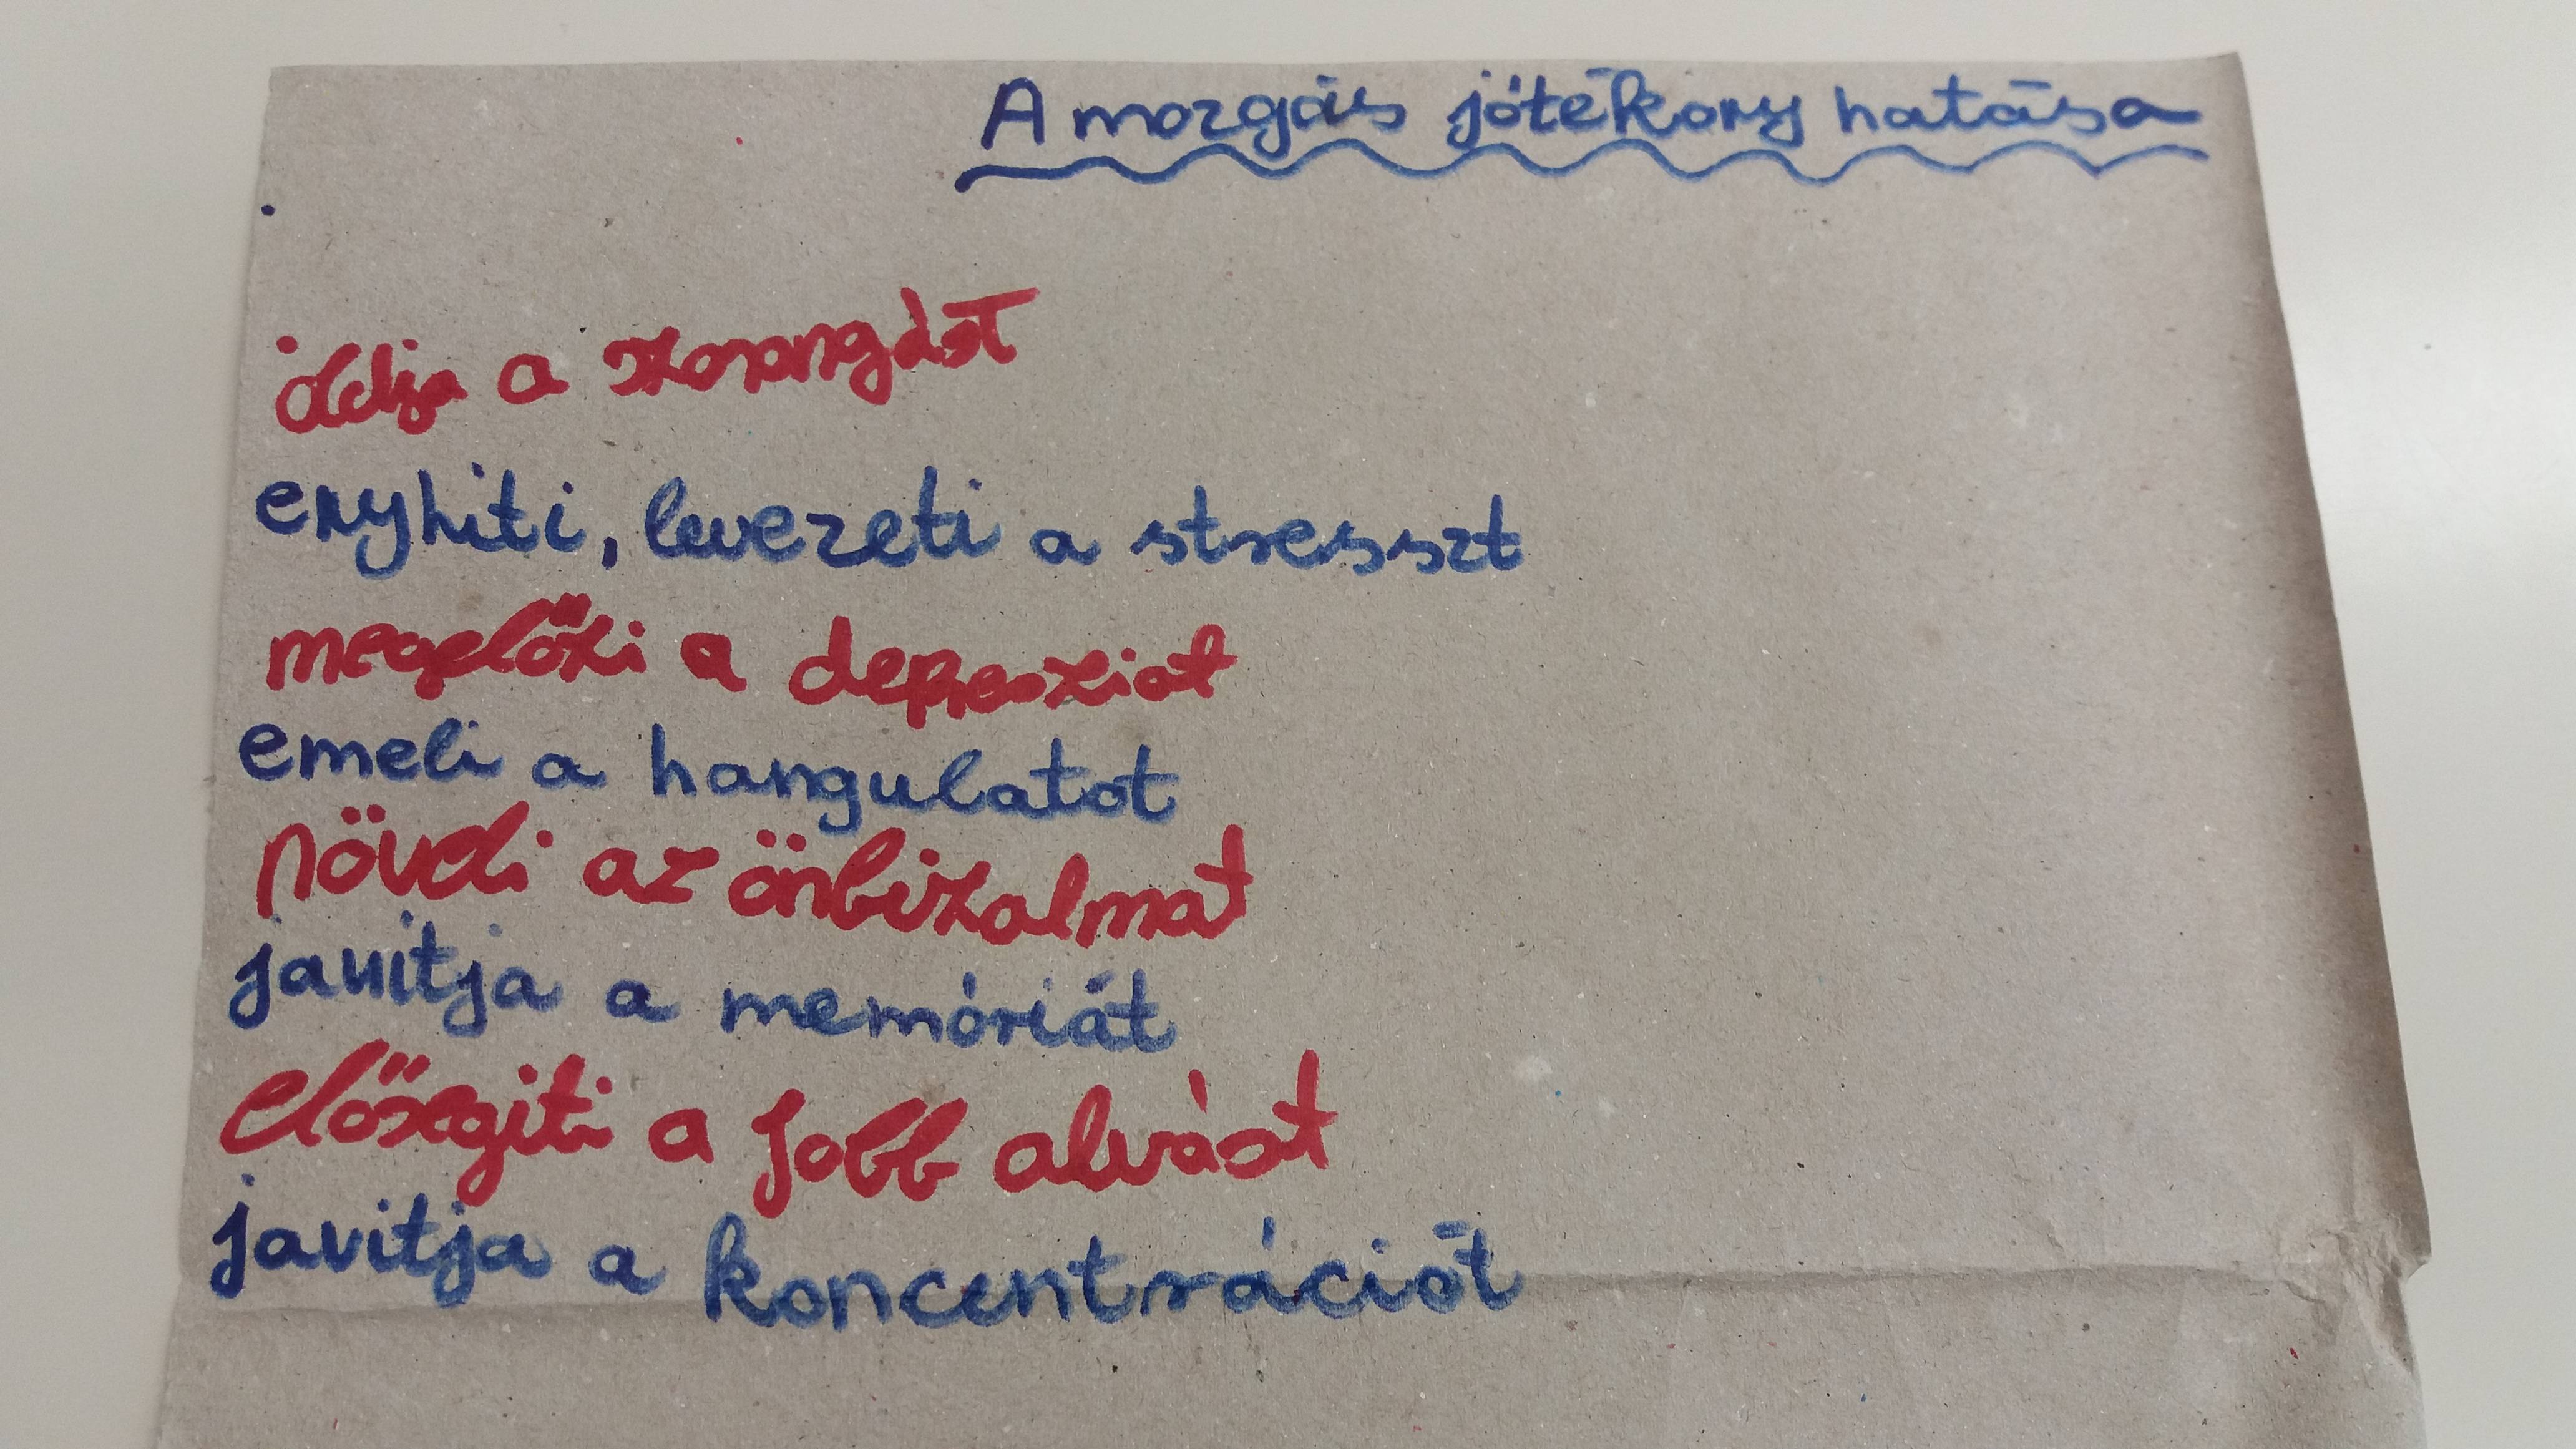 A mozgás jótékony hatása
oldja a szorongást
enyhiti, levezeti a stresszt
megelőzi a depressziot
emeli a hangulatot
növeli az önbizalmat
javitja a memóriát
elősegiti a jobb alvást
javitja a koncentrációt